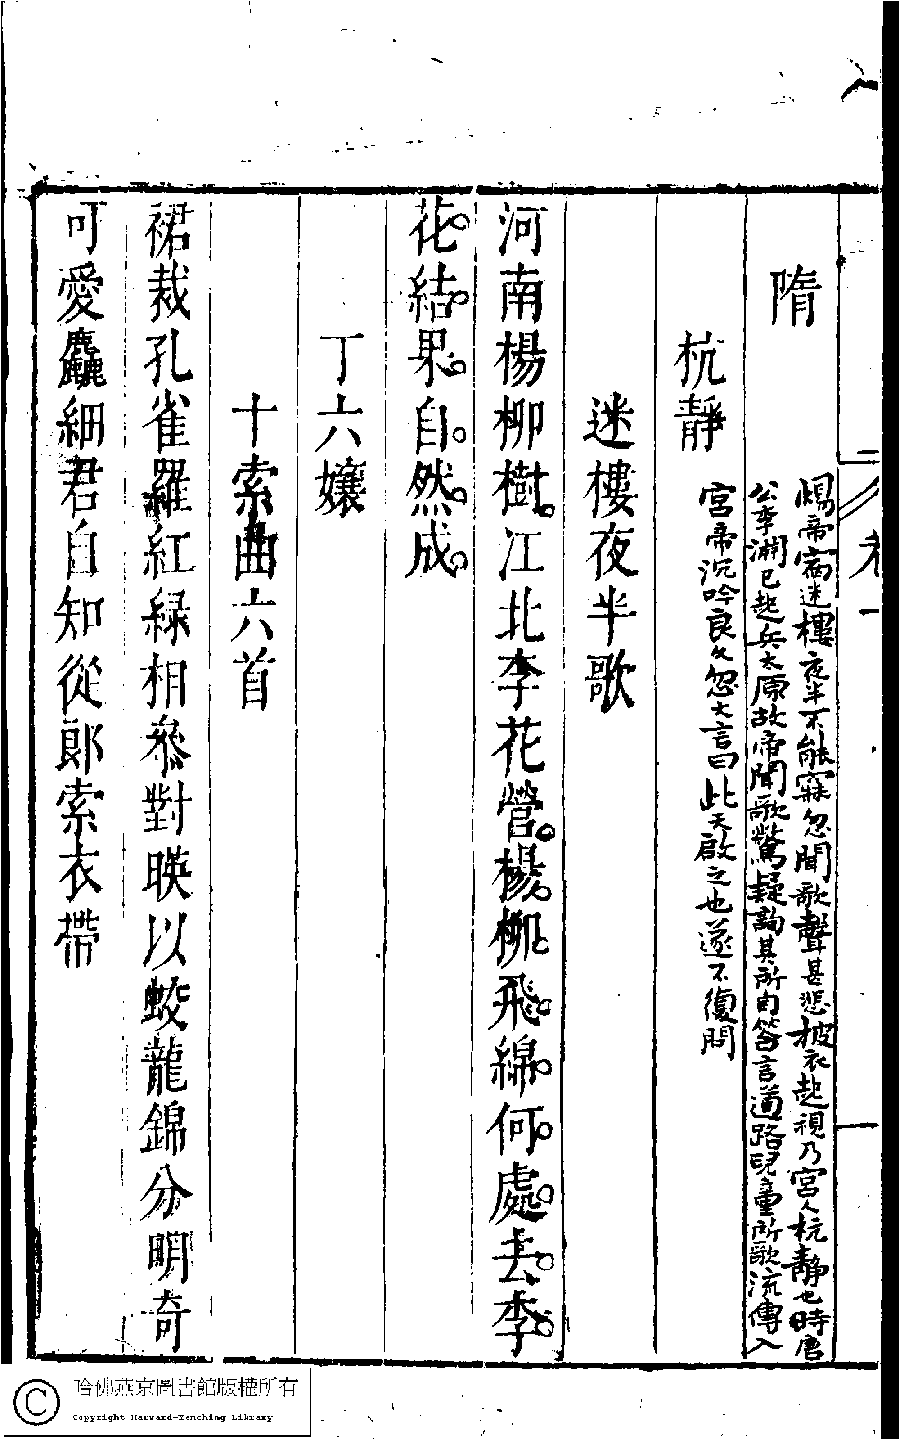 隋
杭靜
煬帝宿迷樓夜半不能寐忽聞歌聲甚悲披衣起視乃宮人杭靜也時唐
公李淵已起兵太原故帝聞歌驚疑詢其所由答言道路兒童所歌流傳入
宮帝沉吟良久忽大言曰此天啟之也遂不復問
迷樓夜半歌
河南楊柳樹江北李花營楊柳飛綿何處去李
花結果自然成
丁六孃
十索曲六首
裙裁孔雀羅紅綠相參對映以蛟龍錦分明奇
可愛麤細君自知從郎索衣帶
卷一
一
哈佛燕京圖書館版權所有
Copyright Harvard-Yenching Library